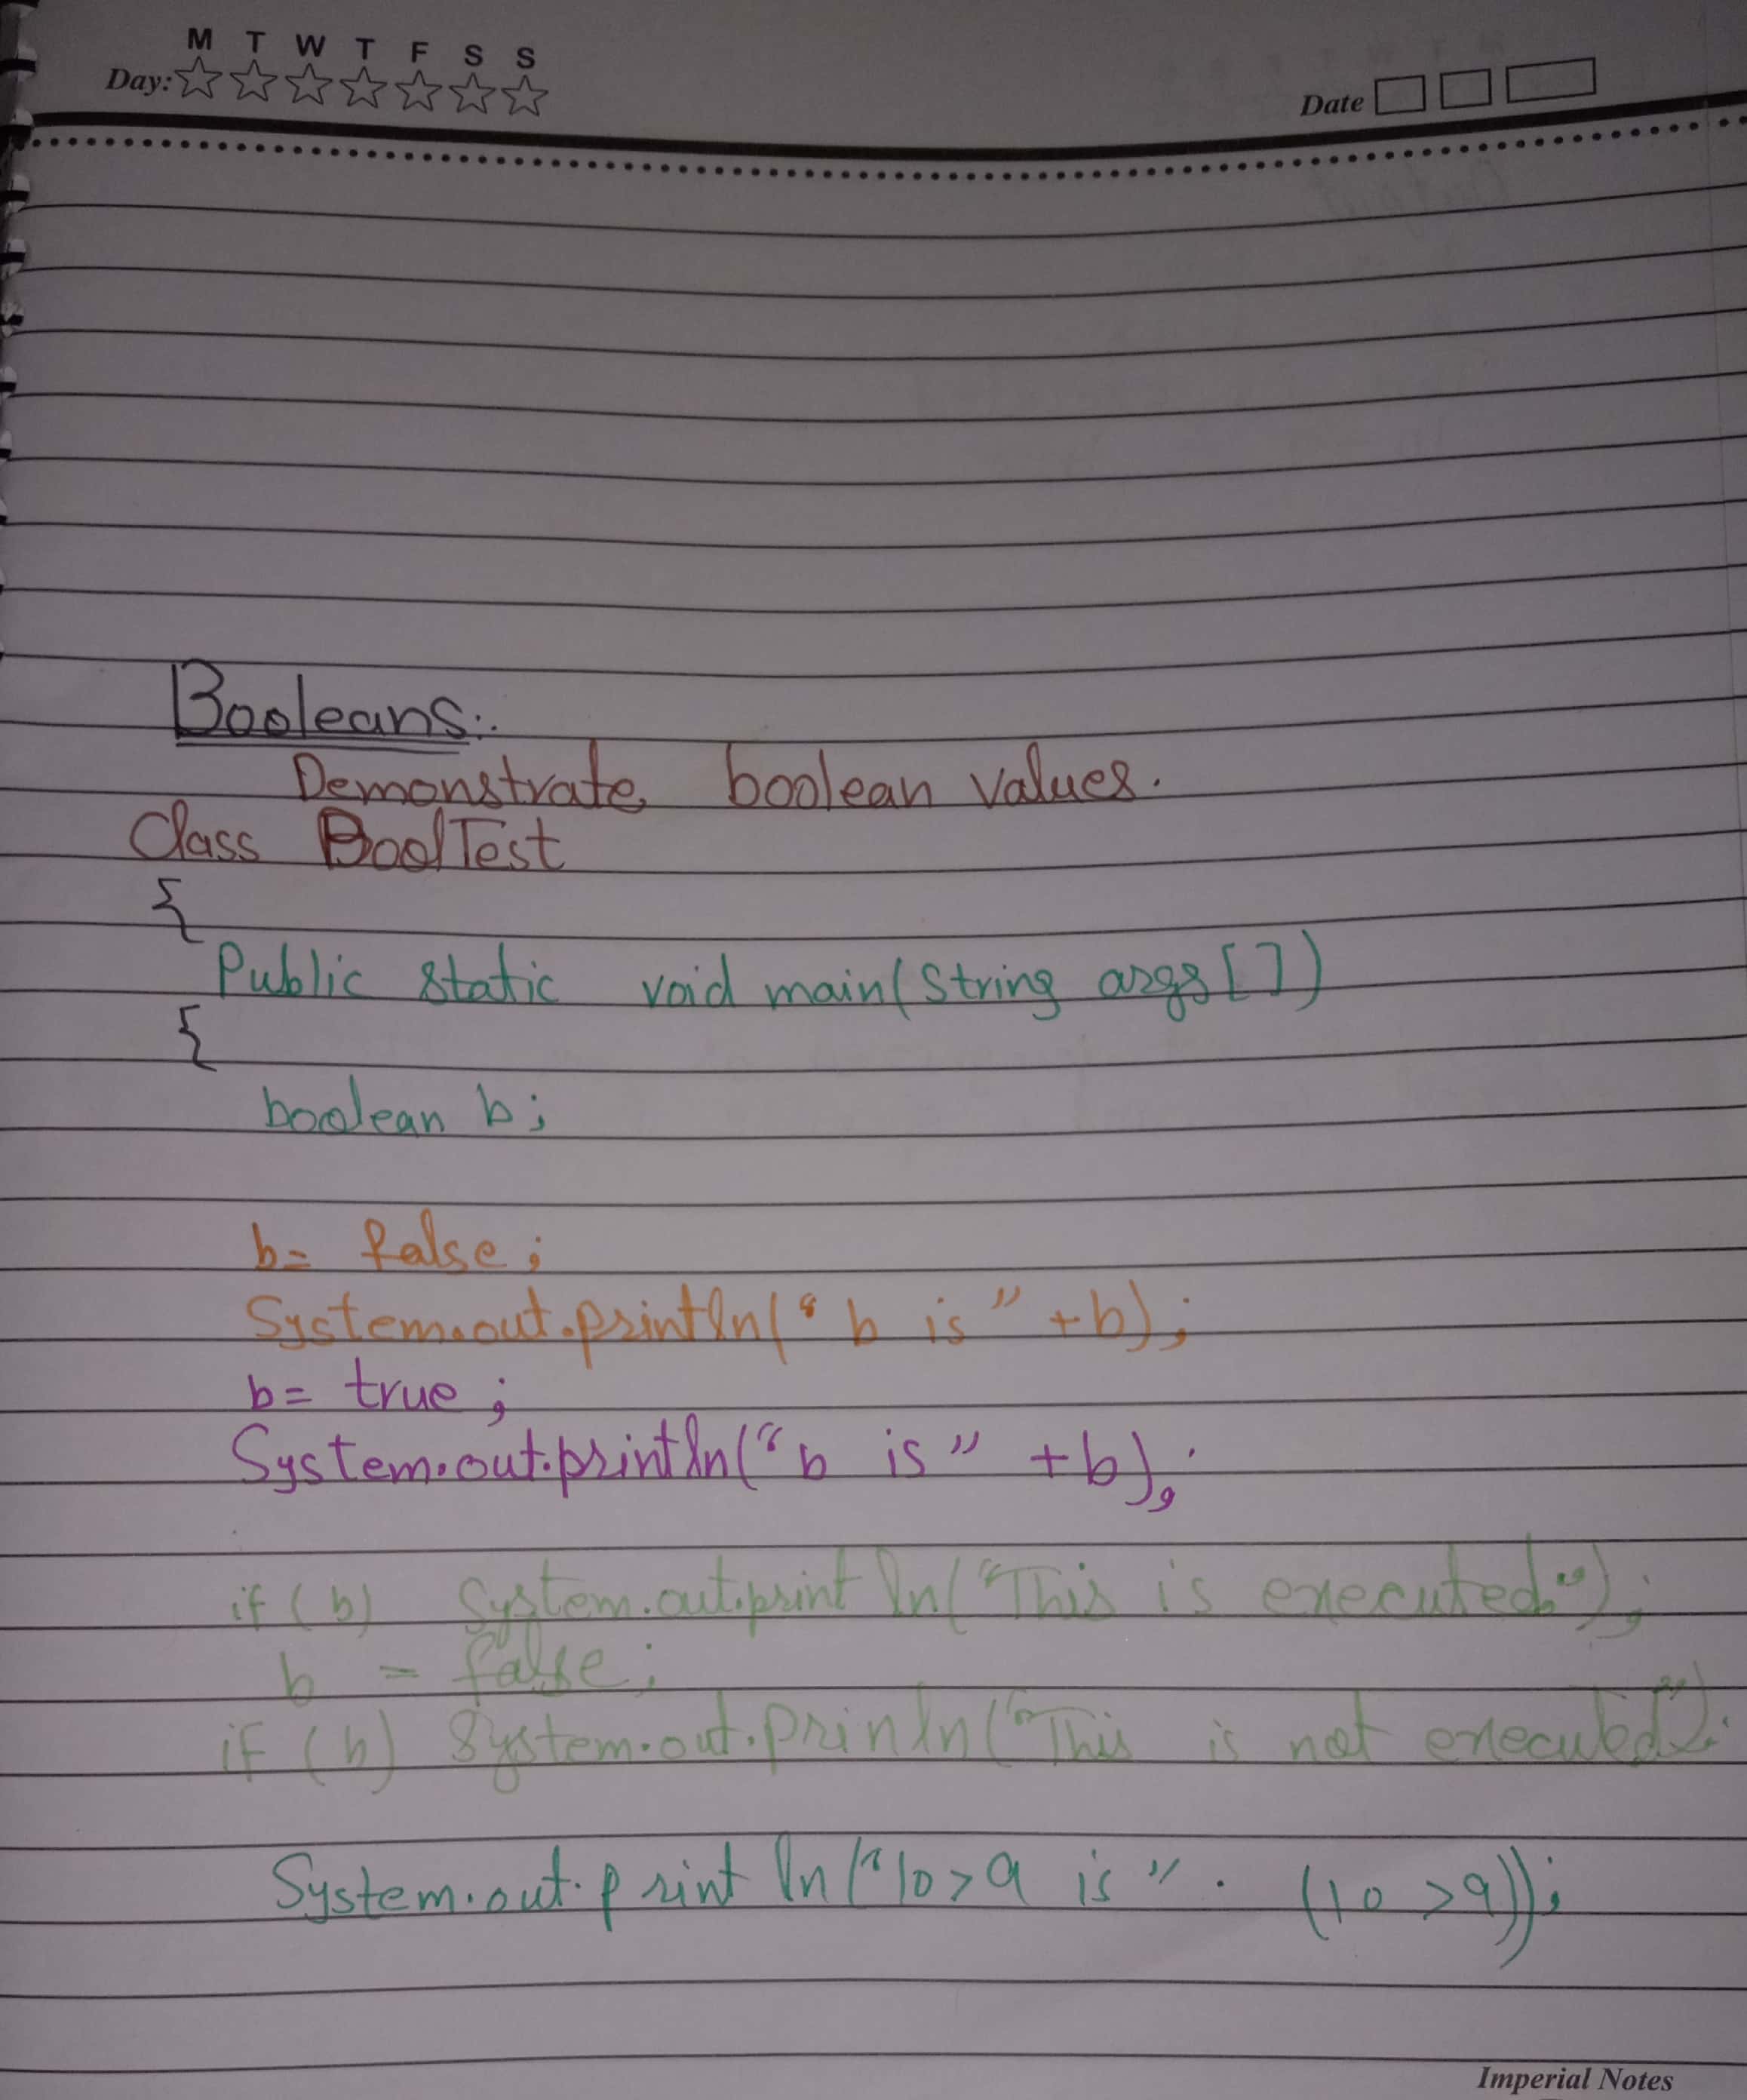 M T W T F S S
Day:
Date
Booleans:.
Demonstrate boolean values.
Class BoolTest
{
Public static void main(String args[])
{
boolean b;
b= false;
System.out.println(“b is” +b);
b= true;
System.out.println(“b is” +b);
if (b) System.out.print ln(“This is executed.”);
b = false;
if (b) System.out.prinln(“This is not executed”);
System.out.print ln(“10>9 is” . (10 >9));
Imperial Notes